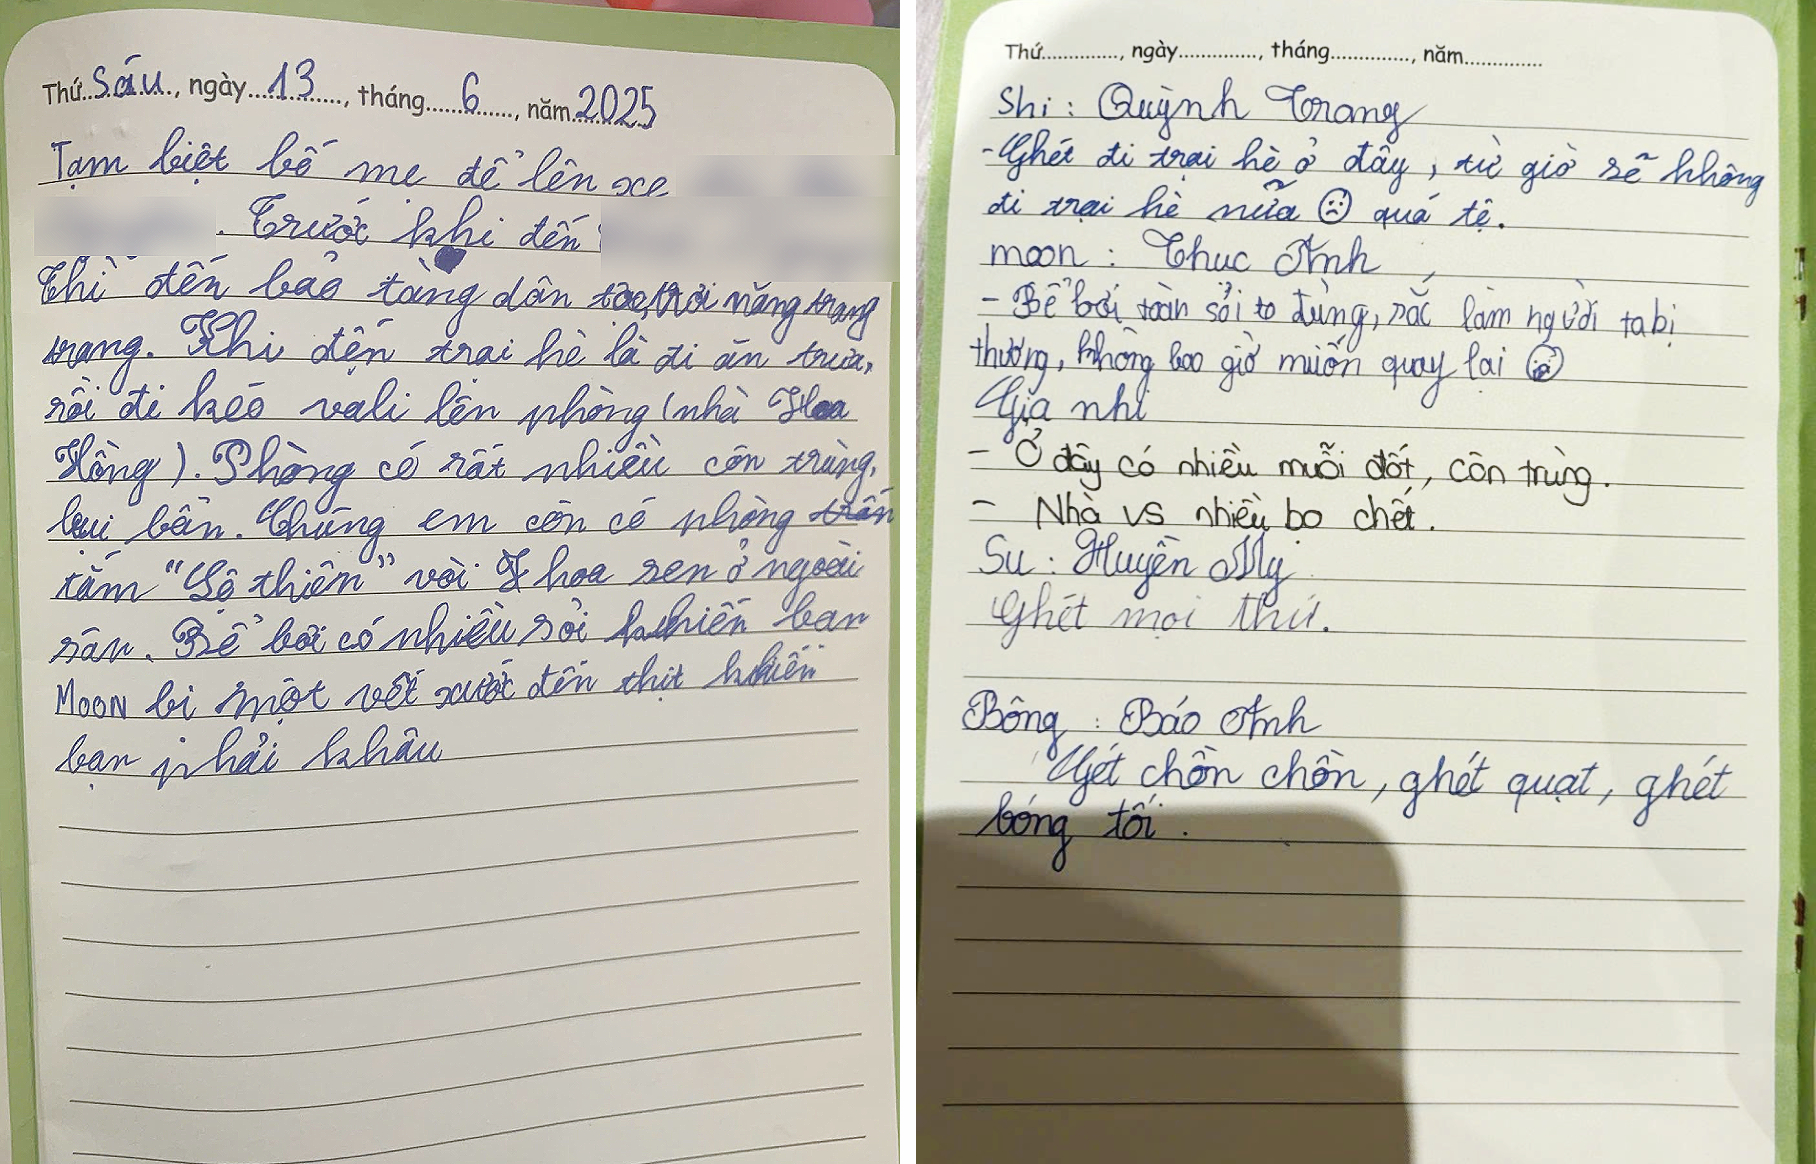 Thứ Sáu, ngày 13, tháng 6, năm 2025
Tạm biệt bố mẹ để lên xe
. Trước khi đến
Thì đến bảo tàng dân tộc, trời nắng trang
trang. Khi đến trại hè là đi ăn trưa,
rồi đi kéo vali lên phòng (nhà Hoa
Hồng). Phòng có rất nhiều côn trùng,
bụi bẩn. Chúng em còn có phòng
tắm "Lộ thiên" với hoa sen ở ngoài
sân. Bể bơi có nhiều sỏi khiến bạn
MOON bị một vết xước đến thịt khiến
bạn phải khâu
Thứ, ngày, tháng, năm
Shi : Quỳnh Trang
- Ghét đi trại hè ở đây, từ giờ sẽ không
đi trại hè nữa ☹ quá tệ.
moon : Thuc Anh
- Bể bơi toàn sỏi to đùng, sắc làm người ta bị
thương, không bao giờ muốn quay lại ☹
Gia nhi
- Ở đây có nhiều muỗi đốt, côn trùng.
- Nhà vs nhiều bọ chết.
Su : Huyền My
Ghét mọi thứ.
Bông : Bảo Anh
Gét chồn chồn, ghét quạt, ghét
bóng tối.